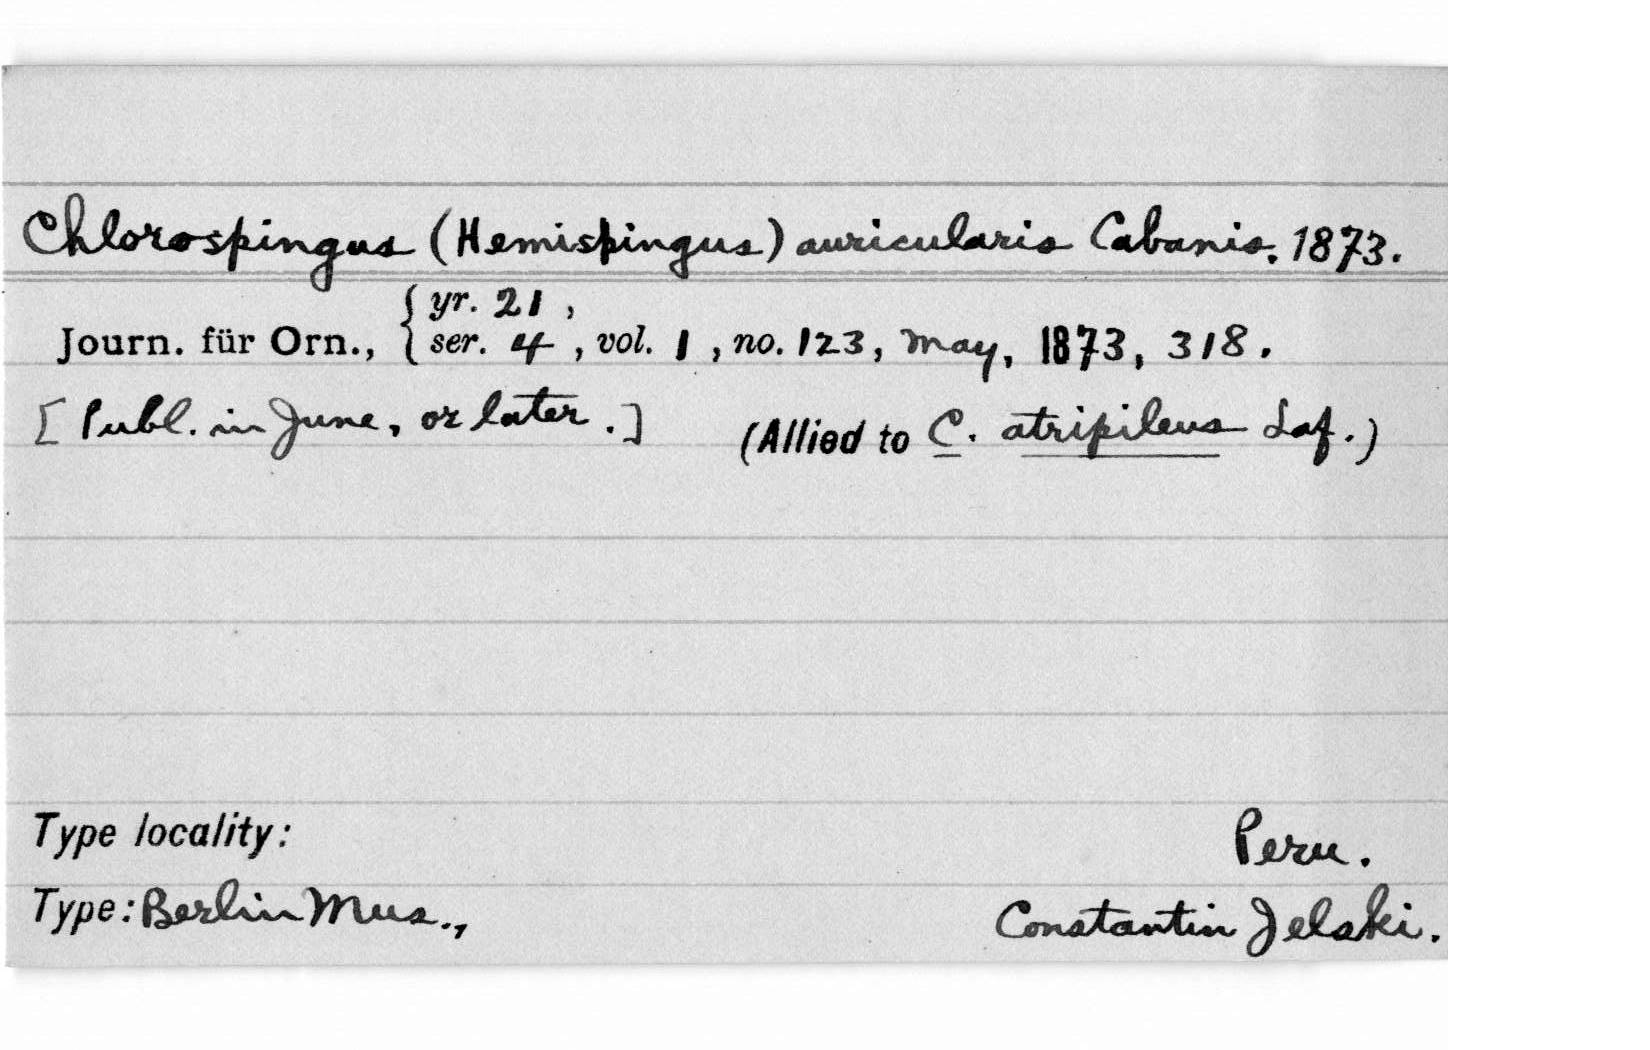 Chlorospingus (Hemispingus) auricularis Cabanis. 1873.
yr. 21,
Journ. für Orn., ser. 4, vol. 1, no. 123, May, 1873, 318.
[Publ. in June, or later.] (Allied to C. atripileus Laf.)
Type locality: Peru.
Type: Berlin Mus., Constantin Jelski.